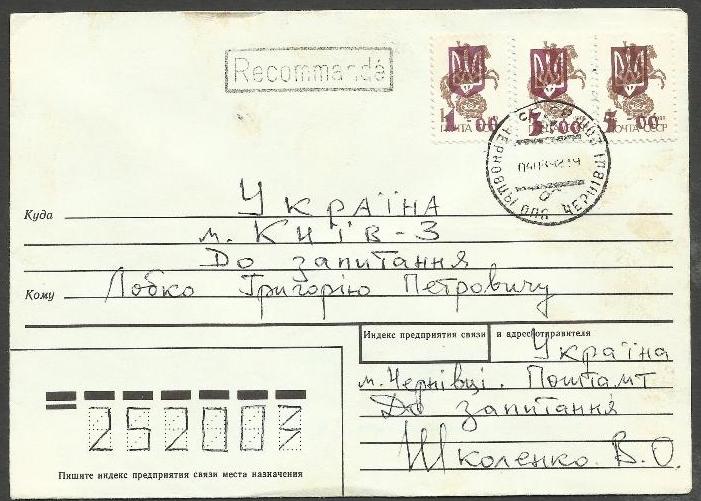 Recommandé
1-00 3-00 5-00
ПОЧТА СССР ПОЧТА СССР ПОЧТА СССР
Україна
Куда
м. Київ-3
До запитання
Кому Лобко Григорію Петровичу
Индекс предприятия связи и адрес отправителя
Україна
м. Чернівці. Поштамт
До запитання
Школенко В.О.
252003
Пишите индекс предприятия связи места назначения